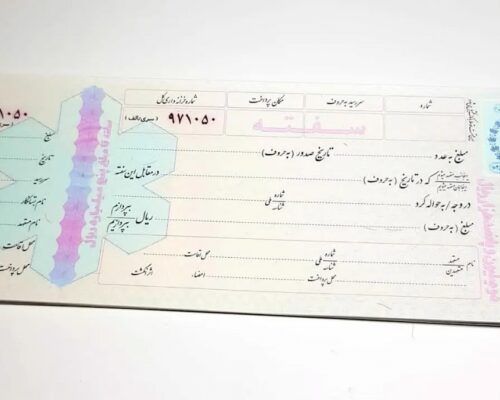 شماره سررسید به حروف مکان پرداخت شماره خزانه داری کل
۹۷۱۰۵۰ (سری/الف)
سفته
مبلغ به عدد تاریخ صدور (به حروف)
که در تاریخ (به حروف) در مقابل این سفته
در وجه / به حواله کرد شماره شناسه ملی
مبلغ (به حروف) ریال بپردازم بپردازیم
نام متعهد متعهدین شماره شناسه ملی محل اقامت
محل پرداخت امضاء اثر انگشت
۱۰۵۰
مبلغ
تاریخ
سررسید
نام متعهد
محل اقامت
محل پرداخت